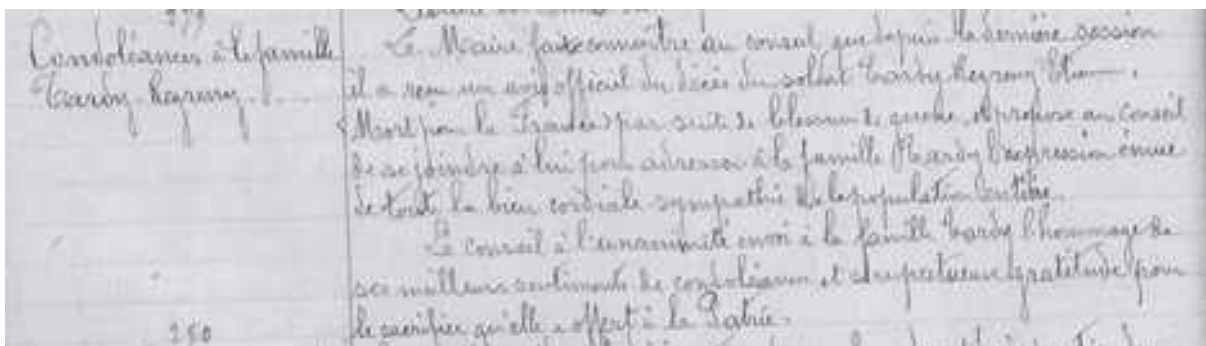 279
Condoléances à la famille
Tardy
Le Maire fait connaitre au conseil que depuis la dernière session
il a reçu un avis officiel du décès du soldat Tardy
(Mort pour la France) par suite de blessures de guerre, et propose au Conseil
de se joindre à lui pour adresser à la famille Tardy l'expression émue
de toute la bien cordiale sympathie de la population entière.
Le conseil à l'unanimité envoi à la famille Tardy l'hommage de
ses meilleurs sentiments de condoléances, et respectueuse gratitude pour
le sacrifice qu'elle a offert à la Patrie.
280